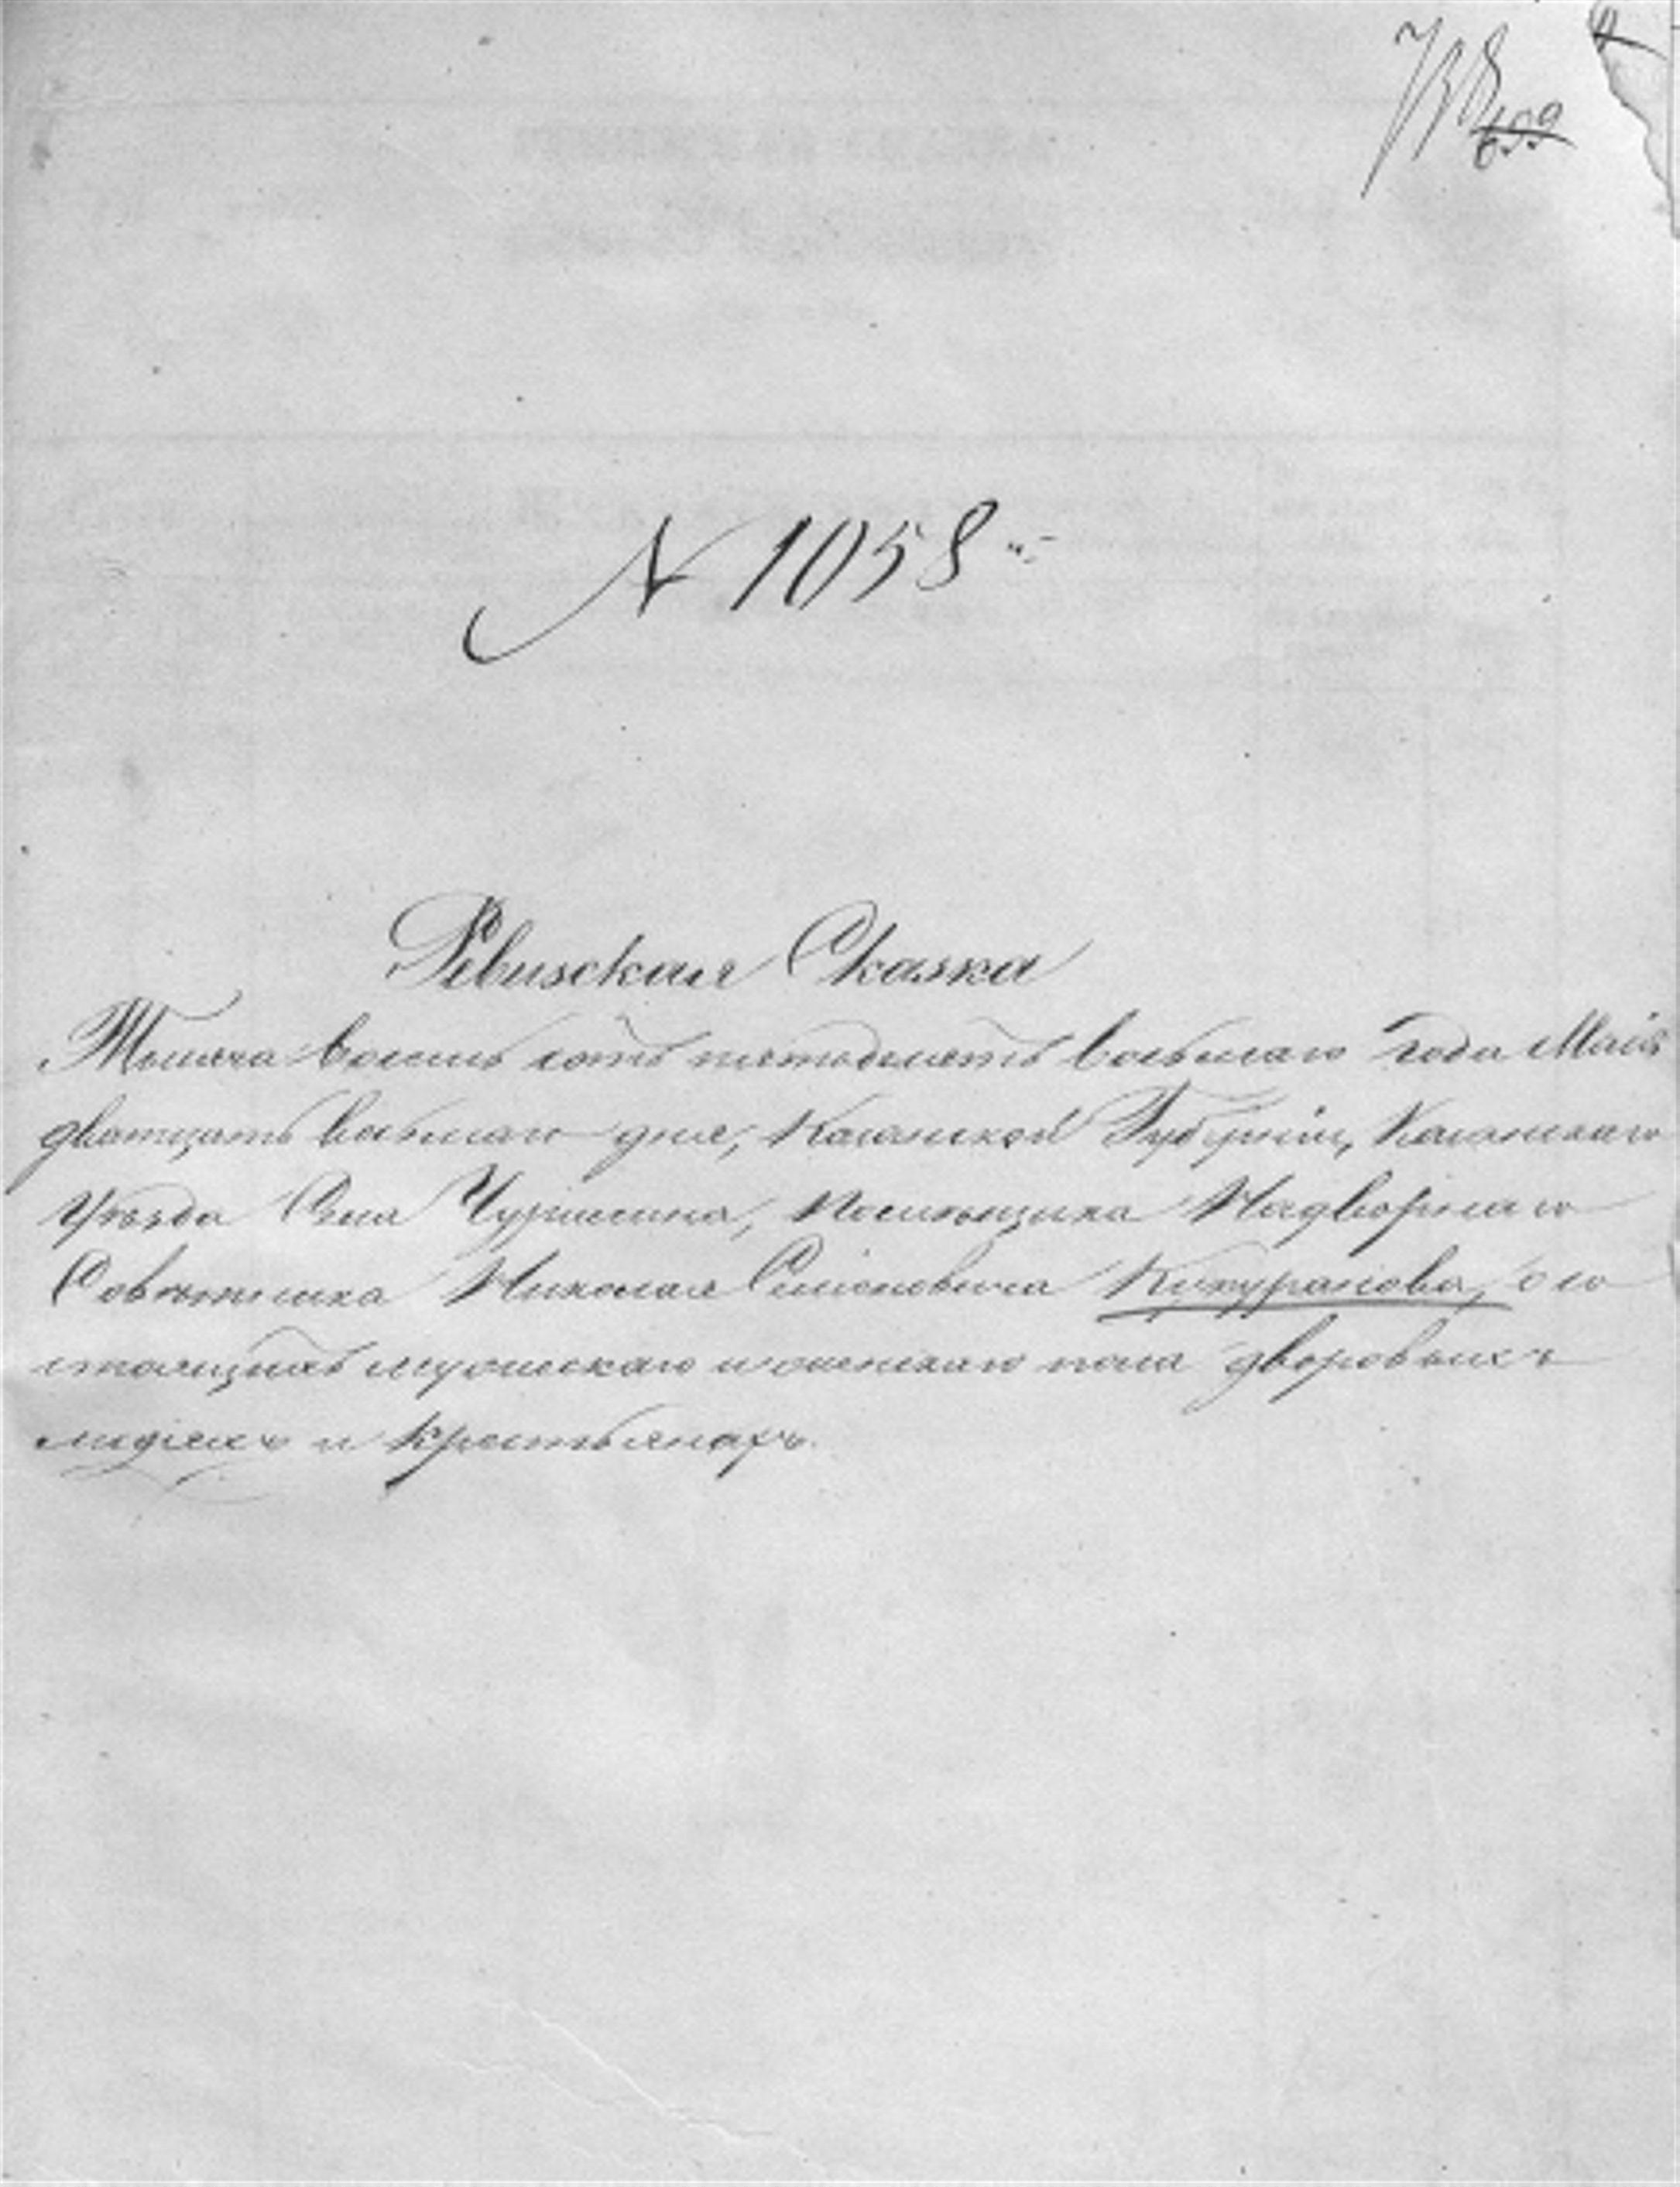 738
699
N 1058.
Ревизская Сказка
Тысяча восемь сотъ пятьдесятъ восьмаго года Маія
дватцать восьмаго дня, Казанской Губерніи, Казанскаго
Уѣзда Села Чурилина, Помѣщика Надворнаго
Совѣтника Николая Семіоновича Кукуранова, о со
стоящихъ мужескаго и женскаго пола дворовыхъ
людяхъ и крестьянахъ.